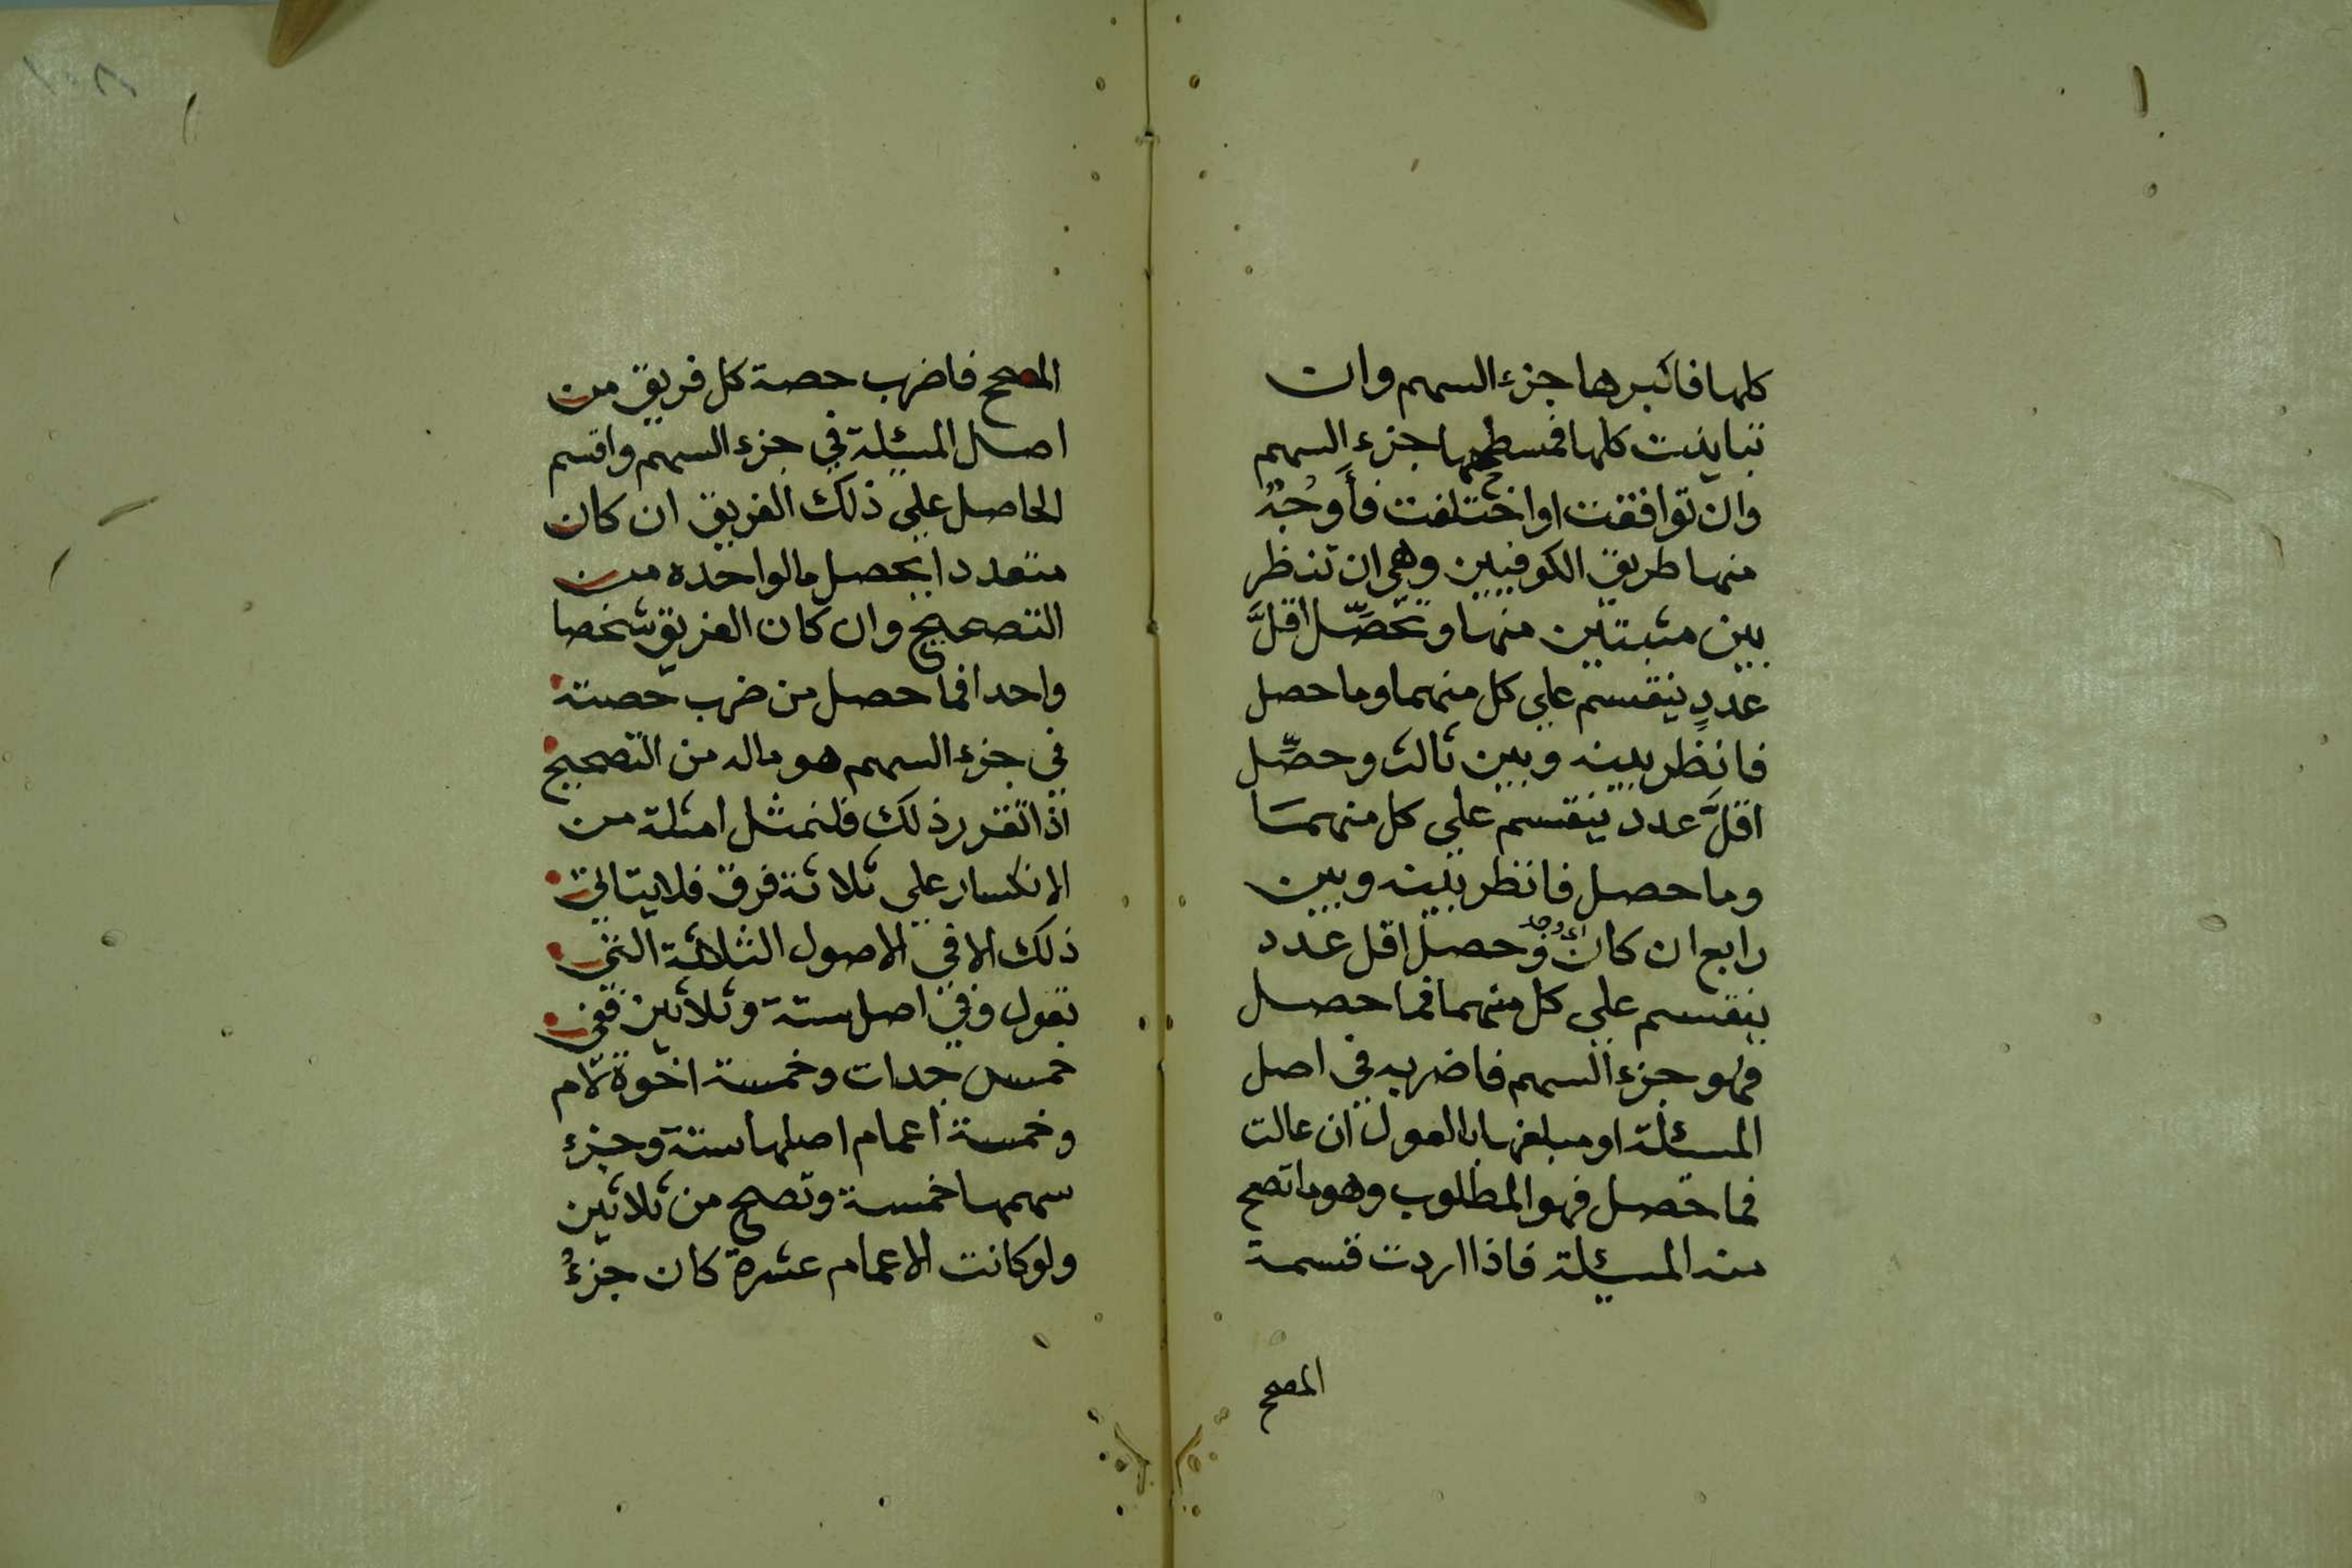 كلها فاكبرها جزء السهم وان
تباينت كلها فمسطحها جزء السهم
وان توافقت او اختلفت فأوجُهٌ
منها طريق الكوفيين وهي ان تنظر
بين مثبتين منها وتحصِّل اقلَّ
عددٍ ينقسم علي كل منهما وما حصل
فانظر بينه وبين ثالث وحصِّل
اقلَّ عدد ينقسم علي كل منهما
وما حصل فانظر بينه وبين
رابع ان كان وحصل اقل عدد
ينقسم علي كل منهما فما حصل
فهو جزء السهم فاضربه في اصل
المسئلة او مبلغها بالعول ان عالت
فما حصل فهو المطلوب وهو ما تصح
منه المسئلة فاذا اردت قسمة
المصحح
١٠٨
المصحح فاضرب حصة كل فريق من
اصل المسئلة في جزء السهم واقسم
الحاصل علي ذلك الفريق ان كان
متعددا يحصل ما لواحده من
التصحيح وان كان الفريق شخصا
واحدا فما حصل من ضرب حصته
في جزء السهم هو ماله من التصحيح
اذا تقرر ذلك فلنمثل امثلة من
الانكسار علي ثلاثة فرق فلا يتاتي
ذلك الا في الاصول الثلاثة التي
تعول وفي اصل ستة وثلاثين ففي
خمس جدات وخمسة اخوة لام
وخمسة اعمام اصلها ستة وجزء
سهمها خمسة وتصح من ثلاثين
ولو كانت الاعمام عشرة كان جزءُ